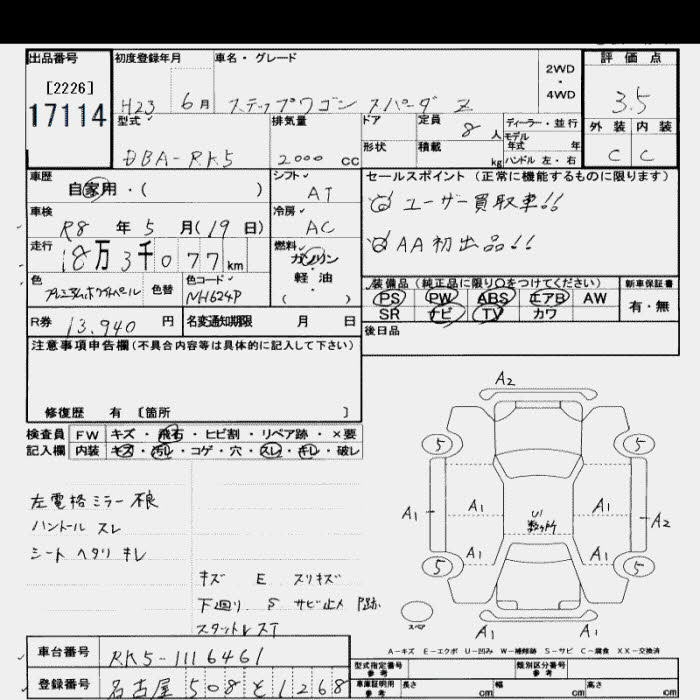 出品番号 初度登録年月 車名・グレード 2WD・4WD 評価点
[2226]
17114 H23 6月 ステップワゴン スパーダ Z 3.5
型式 排気量 ドア 定員 8人 ディーラー・並行 外装 内装
モデル年式 年
DBA-RK5 2000cc 形状 積載 kg ハンドル 左・右 C C
車歴 シフト セールスポイント(正常に機能するものに限ります)
自家用・( ) AT ユーザー買取車!!
車検 冷房
R8年5月(19日) AC AA初出品!!
走行 燃料
18万3千077km ガソリン・軽油
( )
色 色替 色コード 装備品(純正品に限り〇をつけてください) 新車保証書
NH624P PS PW ABS エアB AW 有・無
SR ナビ TV カワ
R券 13,940円 名変通知期限 月 日 後日品
注意事項申告欄(不具合内容等は具体的に記入して下さい)
修復歴 有 〔箇所 〕
検査員 FW キズ・飛石・ヒビ割・リペア跡・×要
記入欄 内装 キズ・汚レ・コゲ・穴・スレ・キレ・破レ
左電格ミラー不良
ハンドル スレ
シート ヘタリ キレ
キズ E スリキズ
下廻り S サビ止メ
スタットレスT
A2
5 5
A1 A1 A1 A2
U1
数ヶ所
A1 A1
5 5
スペア A1 A1
A-キズ E-エクボ U-凹み W-補修跡 S-サビ C-腐食 XX-交換済
車台番号 RK5-1116461
登録番号 名古屋 508 と 1268
型式指定番号 参考 類別区分番号 参考
車庫証明用 参考 長さ cm 幅 cm 高さ cm